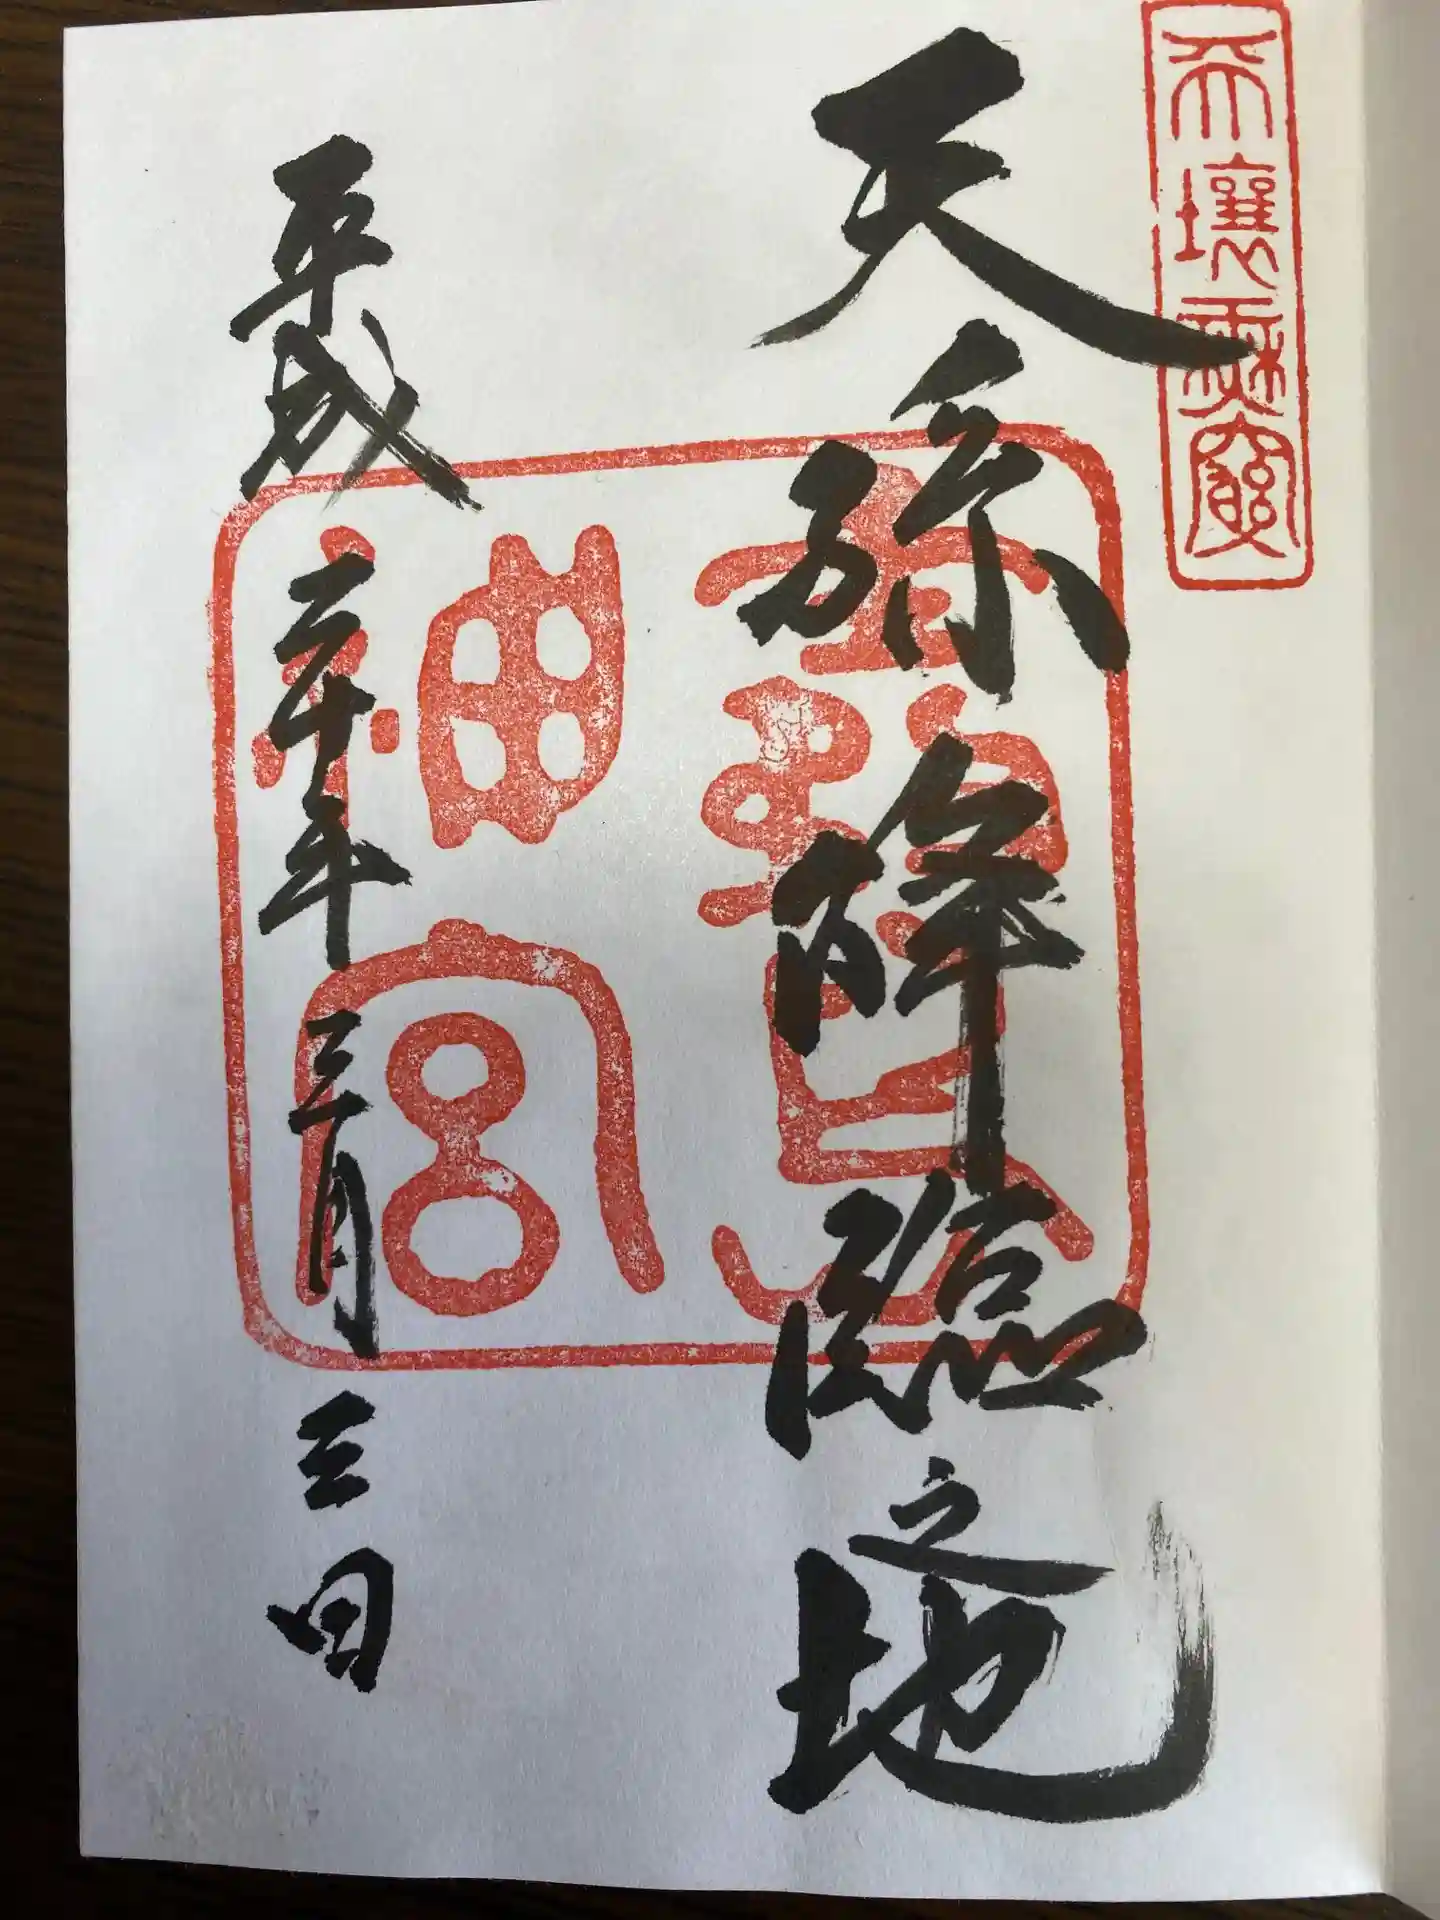 天壌無窮
天孫降臨之地
神宮
平成三十年三月三日